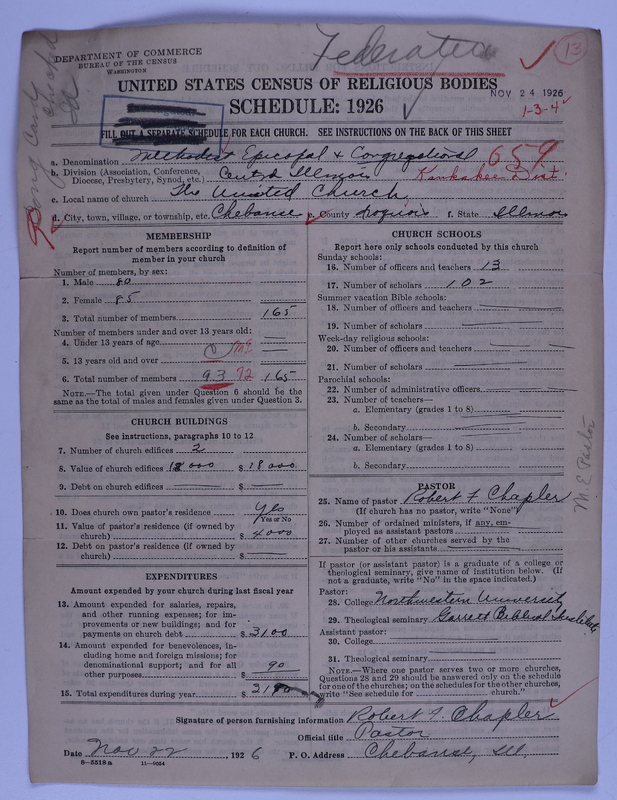 Federation
13
DEPARTMENT OF COMMERCE
BUREAU OF THE CENSUS
WASHINGTON
UNITED STATES CENSUS OF RELIGIOUS BODIES
NOV 24 1926
SCHEDULE: 1926
1-3-4
FILL OUT A SEPARATE SCHEDULE FOR EACH CHURCH. SEE INSTRUCTIONS ON THE BACK OF THIS SHEET
a. Denomination Methodist Episcopal & Congregational 659
b. Division (Association, Conference, Diocese, Presbytery, Synod, etc.) Central Illinois Kankakee Dist
c. Local name of church The United Church
d. City, town, village, or township, etc. Chebanse e. County Iroquois f. State Illinois
MEMBERSHIP
Report number of members according to definition of
member in your church
Number of members, by sex:
1. Male 80
2. Female 85
3. Total number of members 165
Number of members under and over 13 years old:
4. Under 13 years of age
5. 13 years old and over 0 M.E.
6. Total number of members 93 72 165
NOTE.—The total given under Question 6 should be the
same as the total of males and females given under Question 3.
CHURCH BUILDINGS
See instructions, paragraphs 10 to 12
7. Number of church edifices 2
8. Value of church edifices 18000 $ 18000
9. Debt on church edifices $
10. Does church own pastor's residence Yes
Yes or No
11. Value of pastor's residence (if owned by
church) $ 4000
12. Debt on pastor's residence (if owned by
church) $
EXPENDITURES
Amount expended by your church during last fiscal year
13. Amount expended for salaries, repairs,
and other running expenses; for im-
provements or new buildings; and for
payments on church debt $ 3100
14. Amount expended for benevolences, in-
cluding home and foreign missions; for
denominational support; and for all
other purposes $ 90
15. Total expenditures during year $ 3190
CHURCH SCHOOLS
Report here only schools conducted by this church
Sunday schools:
16. Number of officers and teachers 13
17. Number of scholars 102
Summer vacation Bible schools:
18. Number of officers and teachers
19. Number of scholars
Week-day religious schools:
20. Number of officers and teachers
21. Number of scholars
Parochial schools:
22. Number of administrative officers
23. Number of teachers—
a. Elementary (grades 1 to 8)
b. Secondary
24. Number of scholars—
a. Elementary (grades 1 to 8)
b. Secondary
M.E. Pastor
PASTOR
25. Name of pastor Robert F Chapler
(If church has no pastor, write "None")
26. Number of ordained ministers, if any, em-
ployed as assistant pastors
27. Number of other churches served by the
pastor or his assistants
If pastor (or assistant pastor) is a graduate of a college or
theological seminary, give name of institution below. (If
not a graduate, write "No" in the space indicated.)
Pastor:
28. College Northwestern University
29. Theological seminary Garrett Biblical Institute
Assistant pastor:
30. College
31. Theological seminary
NOTE.—Where one pastor serves two or more churches,
Questions 28 and 29 should be answered only on the schedule
for one of the churches; on the schedules for the other churches,
write "See schedule for church."
Signature of person furnishing information Robert F. Chapler
Official title Pastor
Date Nov 22, 1926 P. O. Address Chebanse, Ill.
8-5518a 11-9054